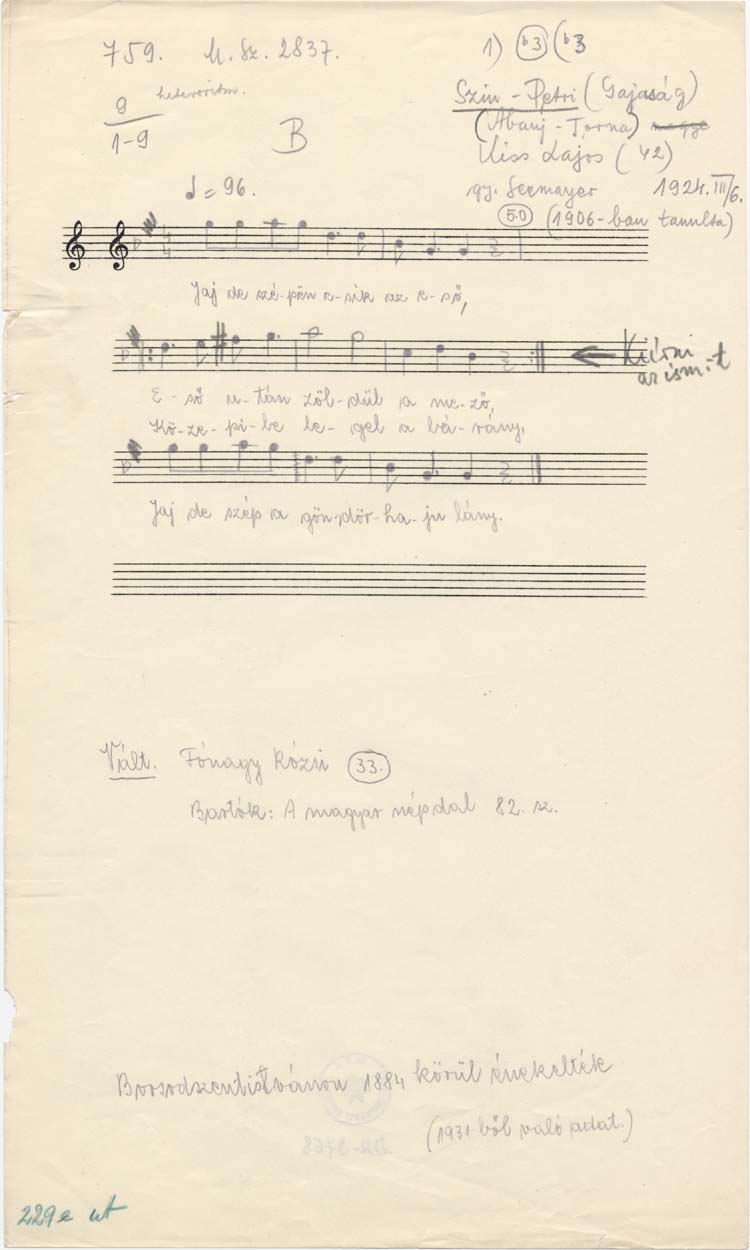 759. M. Sz. 2837. 1) b3 (b3
9 heteroritm.
1-9
B
Szin - Petri (Gajaság)
(Abauj - Torna) megye
Kiss Lajos (42)
♩ = 96. gy. Seemayer 1924. III/6.
50 (1906-ban tanulta)
Jaj de szé-pen e-sik az e-ső,
Kiirni
az ism.-t
E-ső u-tán zöl-dül a me-ző,
Kö-ze-pi-be le-gel a bá-rány,
Jaj de szép a gön-dör-ha-ju lány.
Vált. Fónagy Rózsi 33.
Bartók: A magyar népdal 82. sz.
Borsodszentistvánon 1884 körül énekelték
(1931 ből való adat.)
229e ut